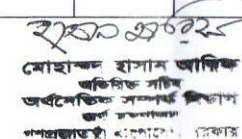 মোহাম্মদ হাসান আরিফ
অতিরিক্ত সচিব
অর্থনৈতিক সম্পর্ক বিভাগ
অর্থ মন্ত্রণালয়
গণপ্রজাতন্ত্রী বাংলাদেশ সরকার